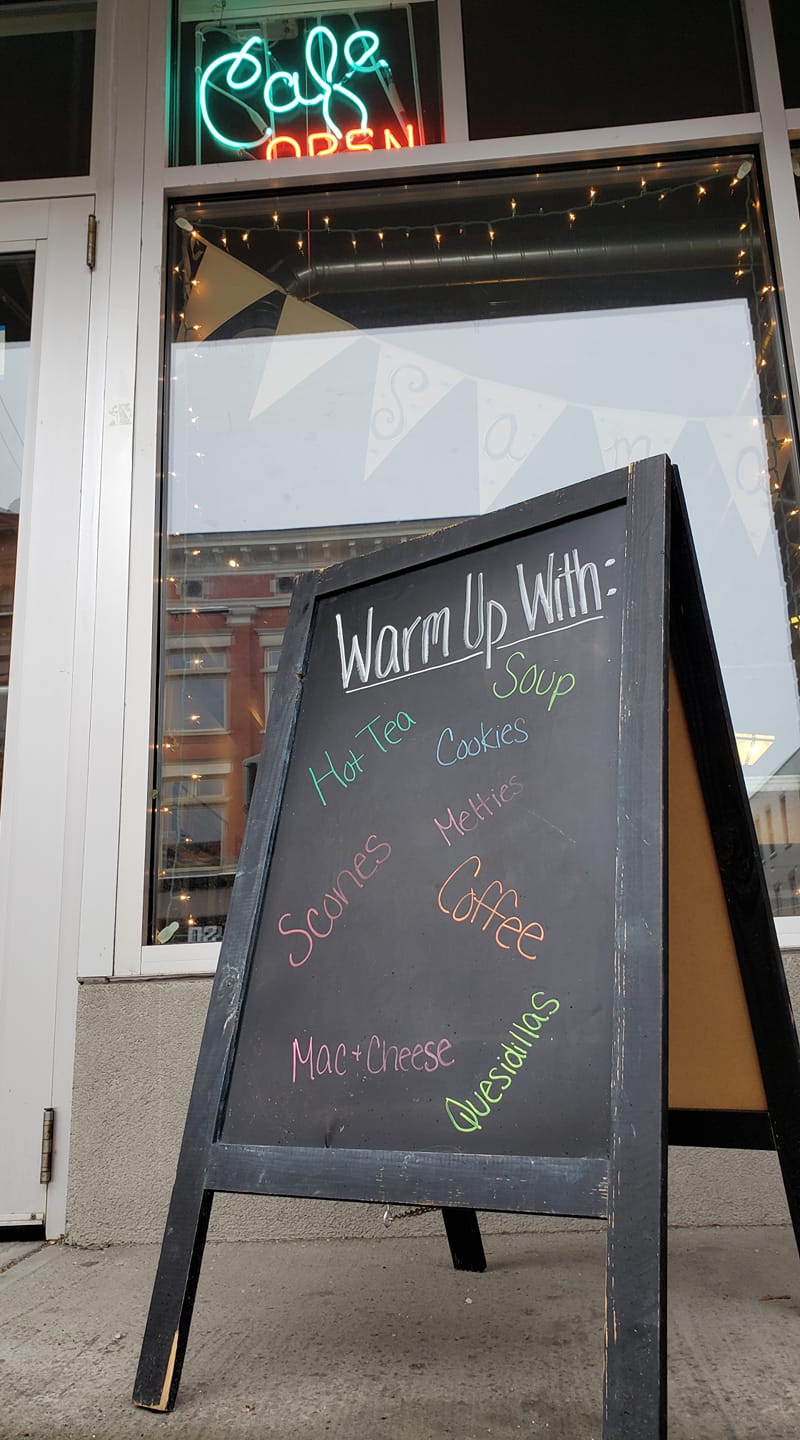 Cafe
OPEN
S a m a
Warm Up With:
Soup
Hot Tea
Cookies
Melties
Scones
Coffee
Mac + Cheese
Quesidillas